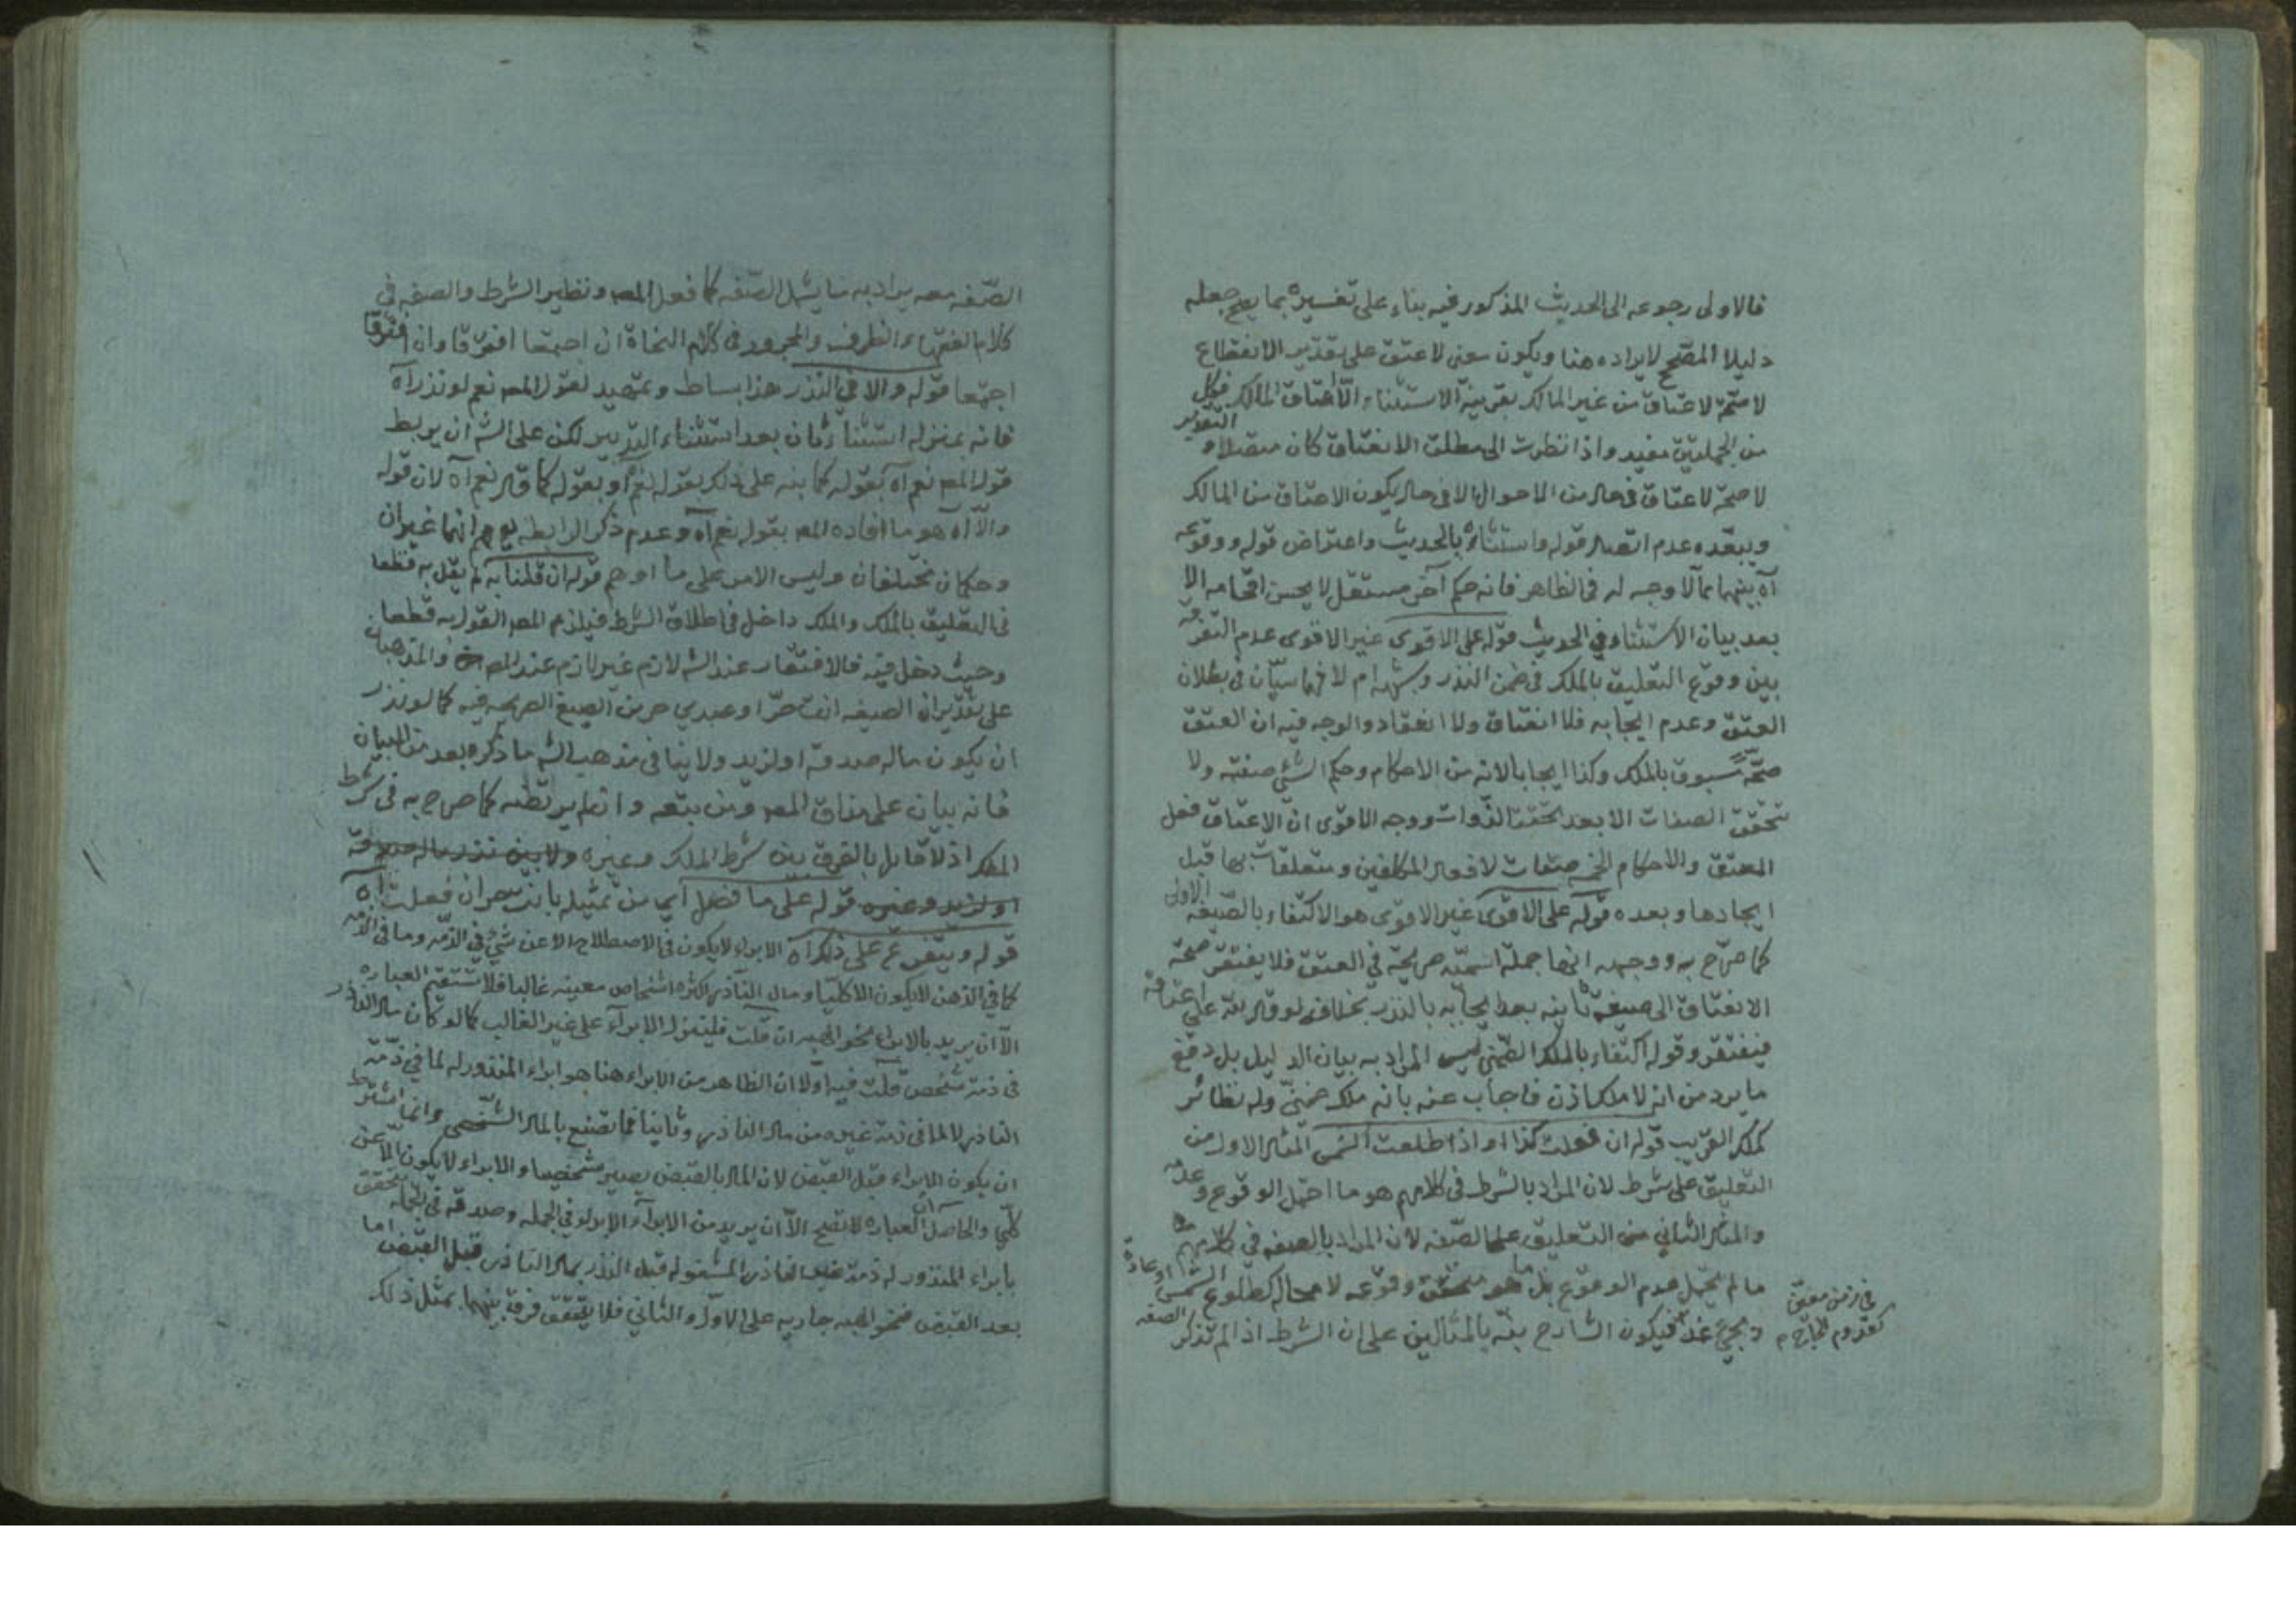 فالاولى رجوعه الى الحديث المذكور فيه بناء على تفسيره بما يصح جعله
دليلا المصحح لايراده هنا ويكون معنى لا عتق على تقدير الانقطاع
لا صحة لاعتاق من غير المالك بقرينة الاستثناء الا اعتاق المالك فيكل
التقدير
من الجملتين مفيد واذا نظرت الى مطلق الانعتاق كان متصلا و
لا صحة لاعتاق فى حال من الاحوال الا فى حال يكون الاعتاق من المالك
ويبعّده عدم اتصال قوله واستثناؤه بالحديث واعتراض قوله ووقوعه
آه بينهما مما لا وجه له فى الظاهر فانه حكم آخر مستقل لا يحسن اقحامه الا
بعد بيان الاستثناء فى الحديث قوله على الاقوى غير الاقوى عدم التفرقة
بين وقوع التعليق بالملك فى ضمن النذر وشبهه ام لا فهما سيّان فى بطلان
العتق وعدم ايجابه فلا انعتاق ولا انعقاد والوجه فيه ان العتق
صحّة مسبوق بالملك وكذا ايجابا لانه من الاحكام وحكم الشئ صفته ولا
تتحقق الصفات الا بعد تحقق الذوات ووجه الاقوى ان الاعتاق فعل
المعتق والاحكام الخمسة صفات لافعال المكلفين ومتعلقات بها قبل
ايجادها وبعده قوله على الاقوى غير الاقوى هو الاكتفاء بالصيغة الاولى
كما صرّح به ووجهه انها جملة اسميّة صريحة فى العتق فلا يفتقر صحة
الانعتاق الى صيغة ثانية بعد ايجابه بالنذر بخلاف لو قال لله على اعتاقه
فيفتقر وقوله اكتفاء بالملك الضمنى ليس المراد به بيان الدليل بل دفع
ما يرد من انه لا ملك اذن فاجاب عنه بانه ملك ضمنىّ وله نظائر
كملك القريب قوله ان فعلت كذا او اذا طلعت الشمس المثال الاول من
التعليق على شرط لان المراد بالشرط فى كلامهم هو ما احتمل الوقوع وعدمه
والمثال الثانى من التعليق على الصّفه لان المراد بالصفه فى كلامهم
ما لم يحتمل عدم الوقوع بل ما هو متحقق وقوعه لا محاله كطلوع الشمس او عادة
فى زمن معيّن
كقدوم الحاج
ومجئ غد فيكون الشارح نبّه بالمثالين على ان الشرط اذا لم تذكر الصفه
الصّفه معه يراد به ما يشمل الصّفه كما فعل المصـ ونظير الشرط والصفه فى
كلام الفقهاء الظرف والمجرور فى كلام النحاة ان اجتمعا افترقا وان افترقا
اجتمعا قوله والا فى النذر هذا بساط وتمهيد لقول المصـ نعم لو نذر آه
فانه بمنزله استثناء ثان بعد استثناء التدبير لكن على الشـ ان يربط
قول المصـ نعم آه بقوله كما نبه على ذلك بقوله نعم او بقوله كما قال نعم آه لان قوله
والّا آه هو ما افاده المصـ بقوله نعم آه وعدم ذكر الرابطه يوهم انهما غيران
وحكمان مختلفان وليس الامر على ما اوهم قوله ان قلنا به لم يقل به قطعا
فى التعليق بالملك والملك داخل فى اطلاق الشرط فيلزم المصـ القول به قطعا
وحيث دخل فيه فالافتقار عند الشـ لازم غير لازم عند المصـ والمذهبان
على تقدير ان الصيغه انت حرّ او عبدي حر من الصيغ الصريحه فيه كما لو نذر
ان يكون ماله صدقة او لزيد ولا ينافى مذهب الشـ ما ذكره بعد من البيان
فانه بيان على مذاق المصـ ومن تبعه وانما يرتضيه كما صرح به فى شرط
الملك اذ لا قايل بالفرق بين شرط الملك وغيره ولا بين نذر ماله صدقة
او لزيد وغيره قوله على ما فصل اي من تمثيله بانت حر ان فعلت آه
قوله ويتفرع على ذلك آه الابراء لا يكون فى الاصطلاح الا عن شئ فى الذمّه وما فى الذمّه
كما فى الذهن لا يكون الا كليّا ومال الناذر اكثره اشخاص معينه غالبا فلا تستقيم العباره
الّا ان يريد بالابراء نحو الهبه ان قلت فلينزل الابراء على غير الغالب كما لو كان مال الناذر
فى ذمّة شخص قلت فيه اوّلا ان الظاهر من الابراء هنا هو ابراء المنذور له لما فى ذمّة
الناذر لا لما فى ذمة غيره من مال الناذر وثانيا فما تصنع بالمال الشخصى وانما اشترط
ان يكون الابراء قبل القبض لان المال بالقبض يصير مشخصا والابراء لا يكون الّا عن
كلّي والحاصل ان العباره لا تصح الّا ان يريد من الابراء الابراء فى الجمله وصدقه فى الجمله يتحقق
بابراء المنذور له ذمة الناذر المشغوله قبل النذر بمال الناذر قبل القبض اما
بعد القبض فنحو الهبه جاريه على الاوّل والثانى فلا يتحقق فرق بينهما بمثل ذلك